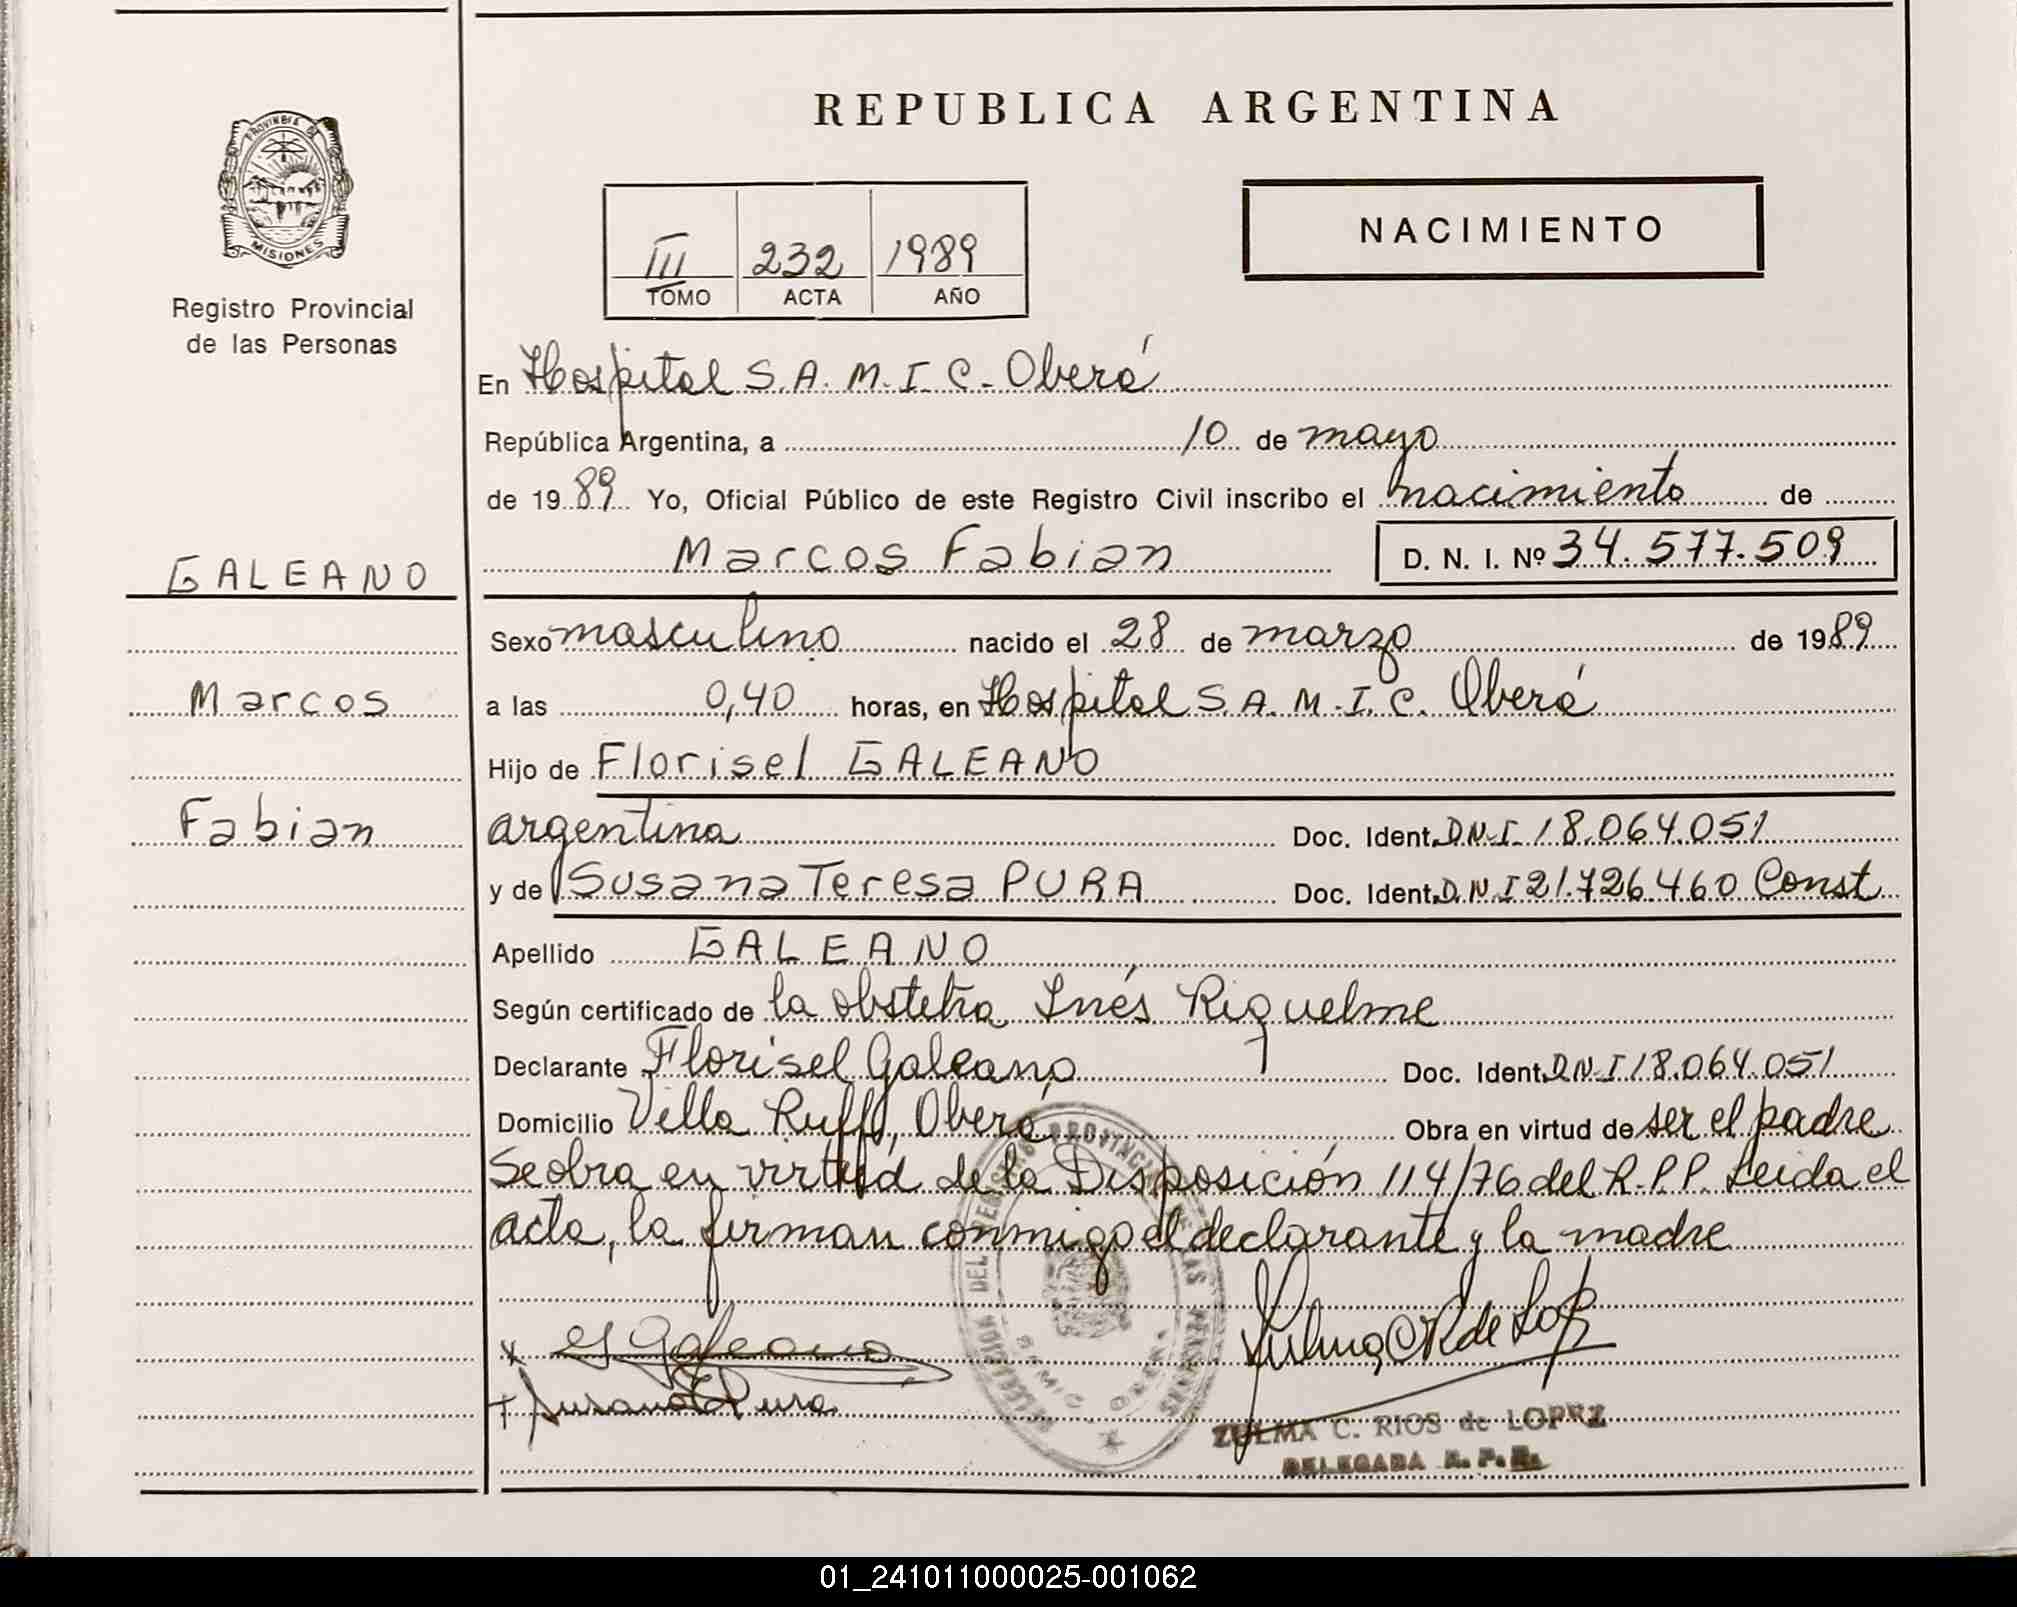 REPUBLICA ARGENTINA
PROVINCIA DE
MISIONES
Registro Provincial
de las Personas
NACIMIENTO
III 232 1989
TOMO ACTA AÑO
En Hospital S.A.M.I.C. Oberá
República Argentina, a 10 de mayo
de 1989 Yo, Oficial Público de este Registro Civil inscribo el nacimiento de
Marcos Fabian D. N. I. Nº 34.577.509
GALEANO
Marcos
Fabian
Sexo masculino nacido el 28 de marzo de 1989
a las 0,40 horas, en Hospital S.A.M.I.C. Oberá
Hijo de Florisel GALEANO
argentina Doc. Ident. D.N.I. 18.064.051
y de Susana Teresa PURA Doc. Ident. D.N.I 21.726.460 Const
Apellido GALEANO
Según certificado de la obstetra Inés Riquelme
Declarante Florisel Galeano Doc. Ident. D.N.I 18.064.051
Domicilio Villa Ruff, Oberá Obra en virtud de ser el padre
Se obra en virtud de la Disposición 114/76 del R.P.P. Leida el
acta, la firman conmigo el declarante y la madre
x Galeano
+ Susana T Pura
Zulma C R de Lopez
ZULMA C. RIOS de LOPEZ
DELEGADA R. P. P.
01_241011000025-001062